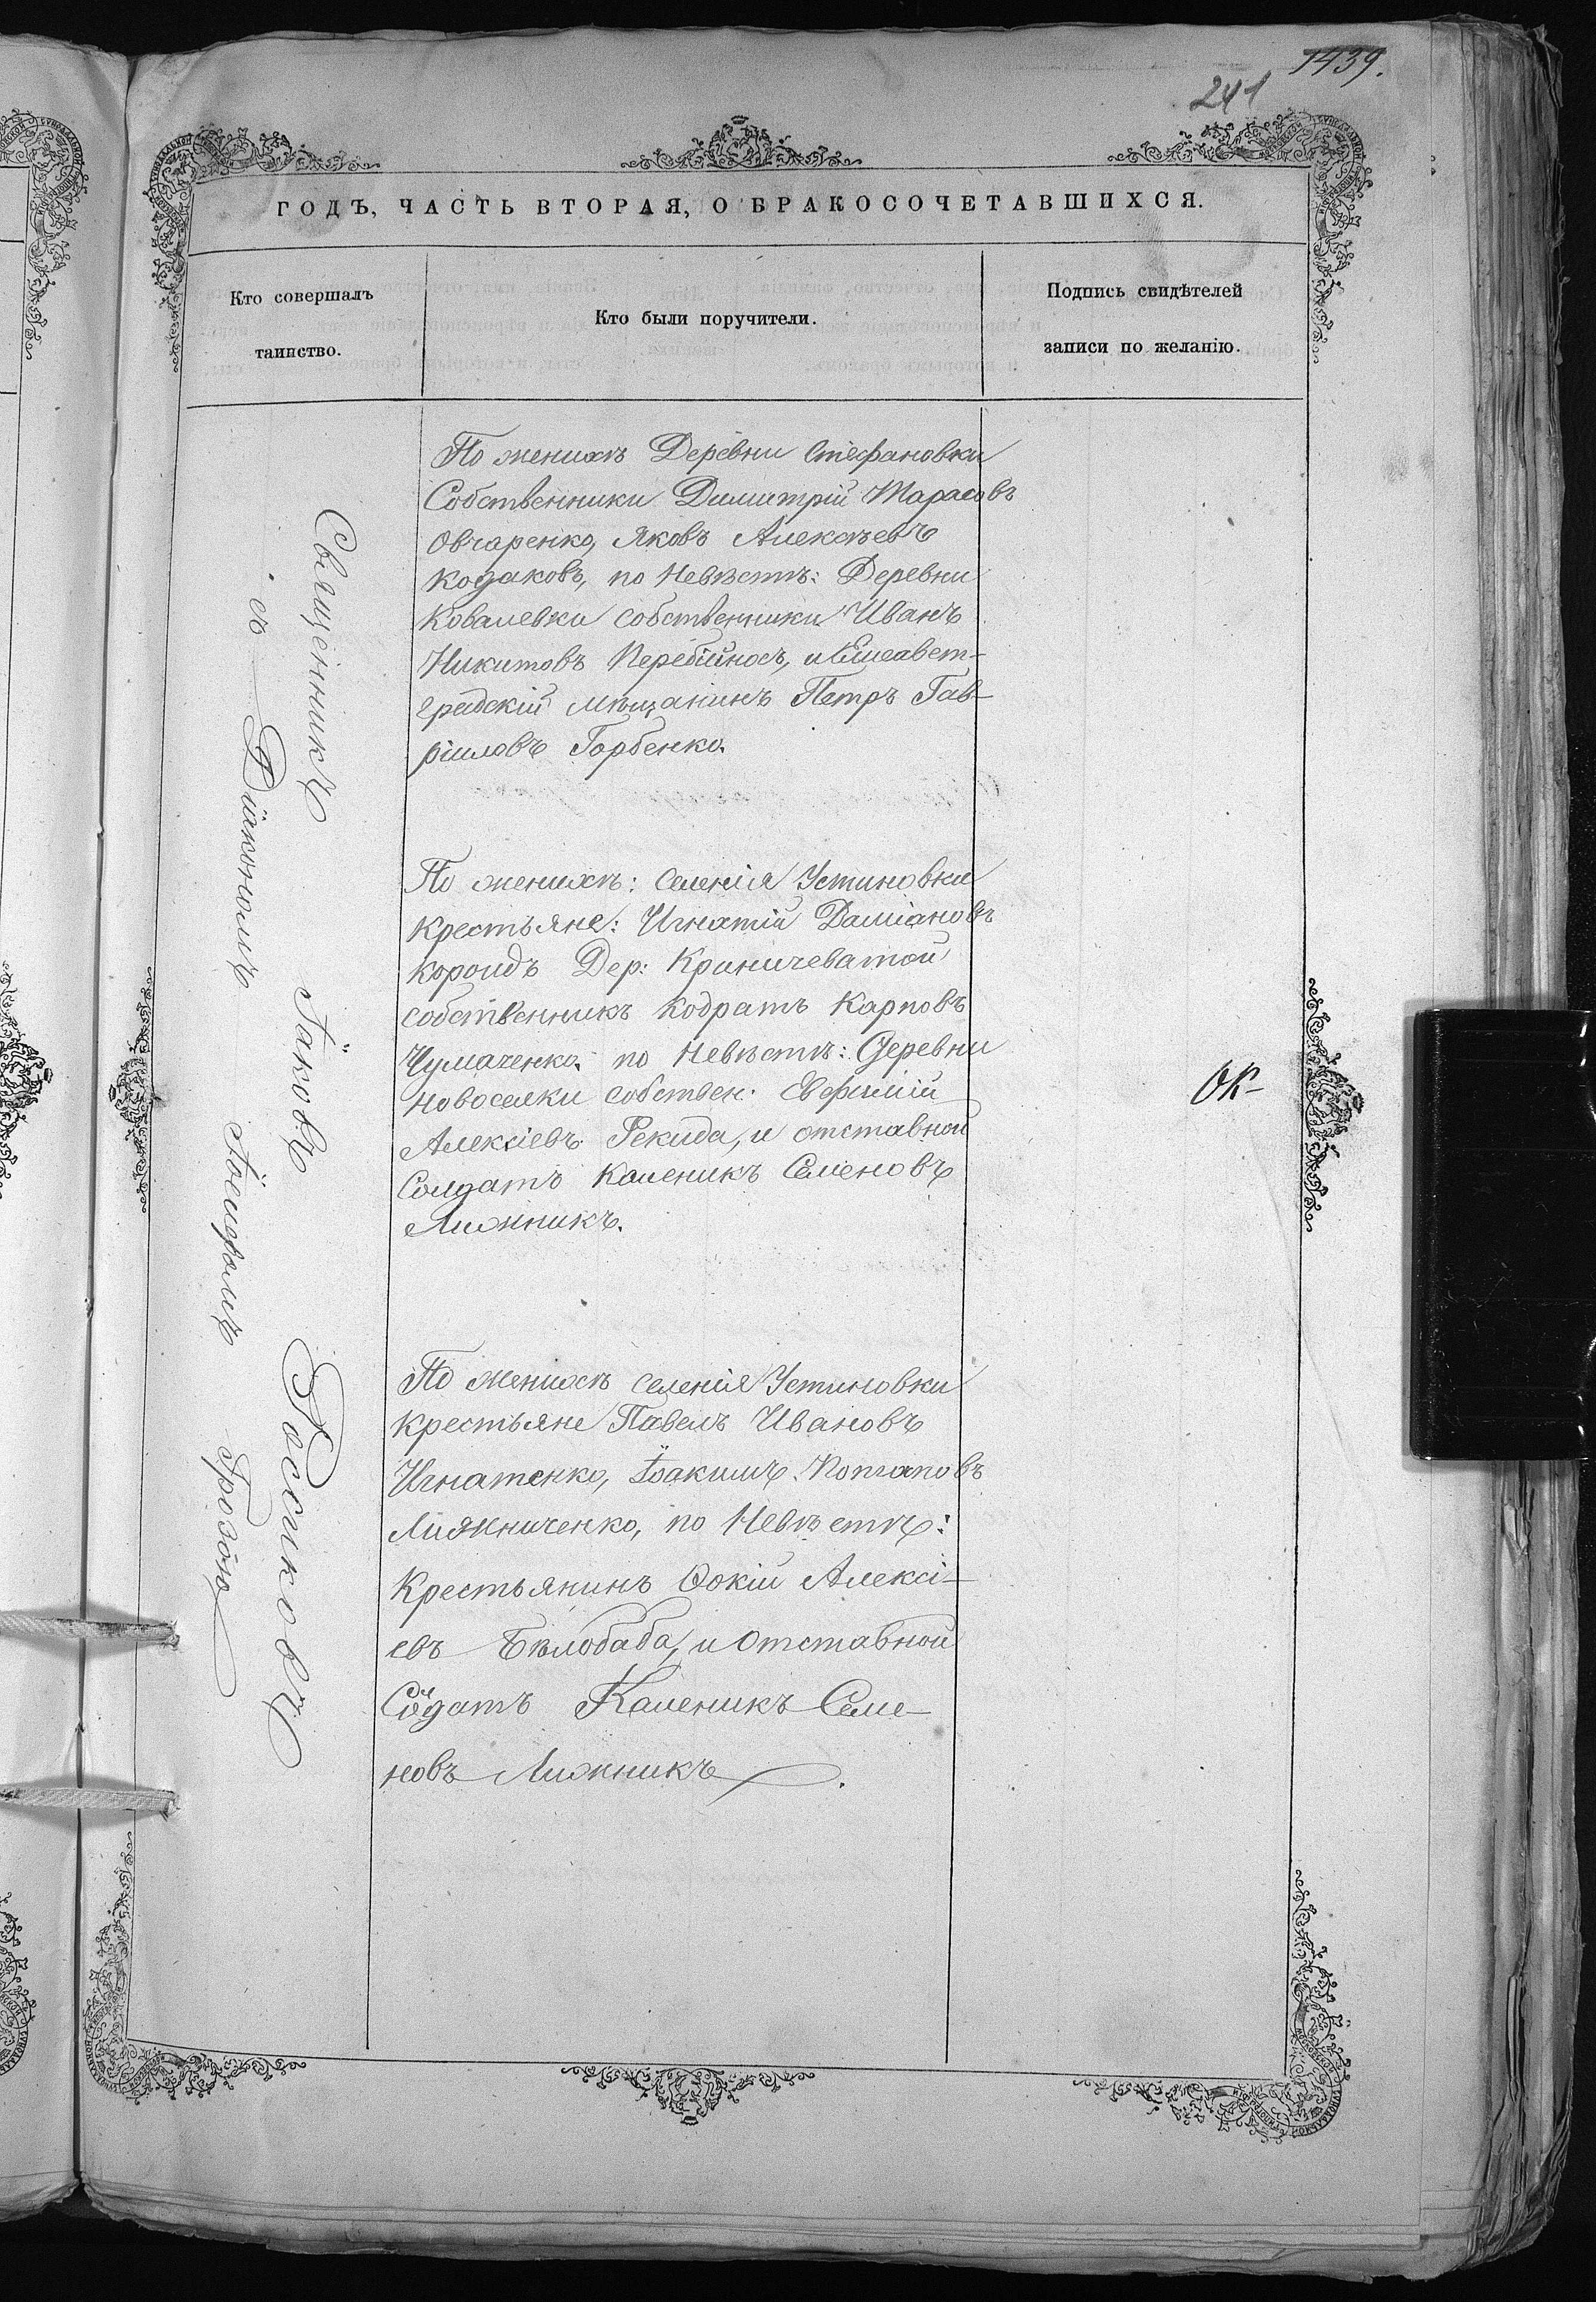 1439.
241
ГОДЪ, ЧАСТЬ ВТОРАЯ, О БРАКОСОЧЕТАВШИХСЯ.
Кто совершалъ
таинство.
Кто были поручители.
Подпись свидѣтелей
записи по желанію.
Священникъ Іаковъ Россиковъ
съ Діакономъ Грозою
По женихѣ Деревни Стефановки
Собственники Димитрій Тарасовъ
Овчаренко, Яковъ Алексѣевъ
Козаковъ, по Невѣстѣ: Деревни
Ковалевки собственники Иванъ
Никитовъ Перебійносъ, и Елисавет-
градскій мѣщанинъ Петръ Гав-
ріиловъ Горбенко.
По женихѣ: селенія Устиновки
крестьяне: Игнатій Даміановъ
Короидъ Дер: Криничеватой
собственникъ Кодратъ Карповъ
Чумаченко. по Невѣстѣ: Деревни
Новоселки собствен: Евфимій
Алексіевъ Рекида, и отставной
Солдатъ Каленикъ Семеновъ
Лижникъ.
По женихѣ селенія Устиновки
крестьяне Павелъ Ивановъ
Игнатенко, Іоакимъ Потаповъ
Лижниченко, по Невѣстѣ:
Крестьянинъ Фокій Алексі-
евъ Бѣлобаба, и Отставной
Солдатъ Каленикъ Семе-
новъ Лижникъ.
ОК-